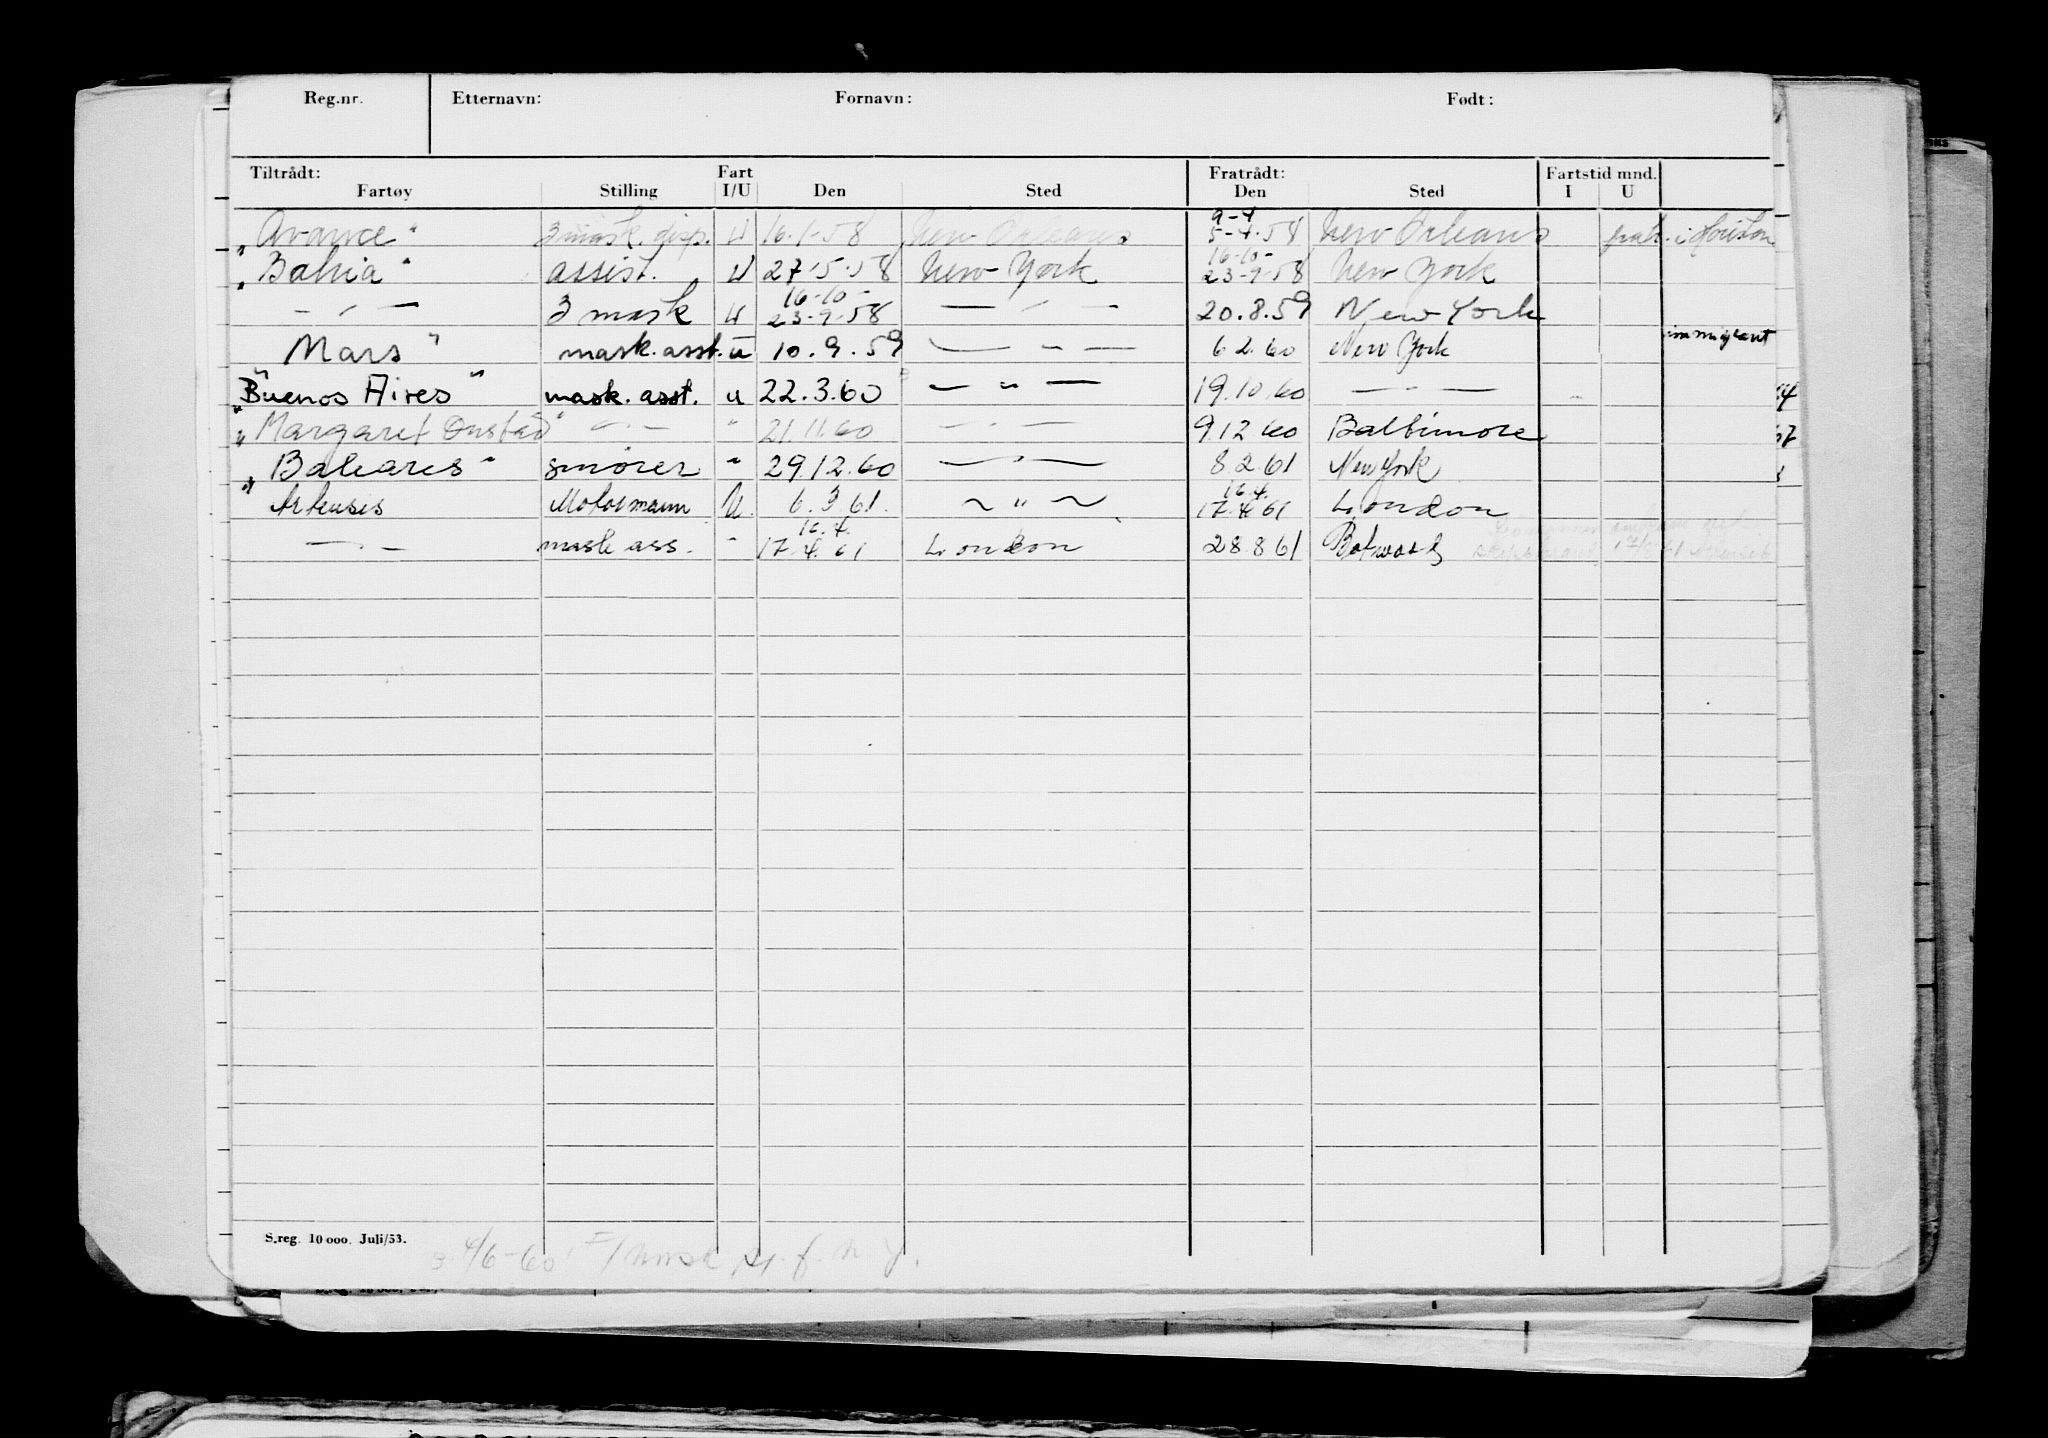 Reg.nr. Etternavn: Fornavn: Født:
Tiltrådt: Fart Fratrådt: Fartstid mnd.
Fartøy Stilling I/U Den Sted Den Sted I U
9-4
"Avance" 3 mask. disp. U 16.1.58 New Orleans 5-4.58 New Orleans fratr. i Houston
16-10-
"Bahia" assist. U 27.5.58 New York 23-9.58 New York
16-10-
— " — 3 mask U 23-9.58 — " — 20.8.59 New York
Mars" mask. asst. U 10.9.59 — " — 6 2. 60 New York immigrant
"Buenos Aires" mask. asst. u 22.3.60 — " — 19.10.60 — " —
"Margaret Onstad" — " — " 21.11.60 — " — 9.12 60 Baltimore
"Baleares" smører " 29.12.60 — " — 8.2.61 New York
16.4.
Artensis Motormann U. 6.3 61. ~ " ~ 17.4.61 London
16.4.
— " — mask ass. " 17.4.61 London 28.8 61 Botwood
S.reg. 10 000. Juli/53.
4/6-60